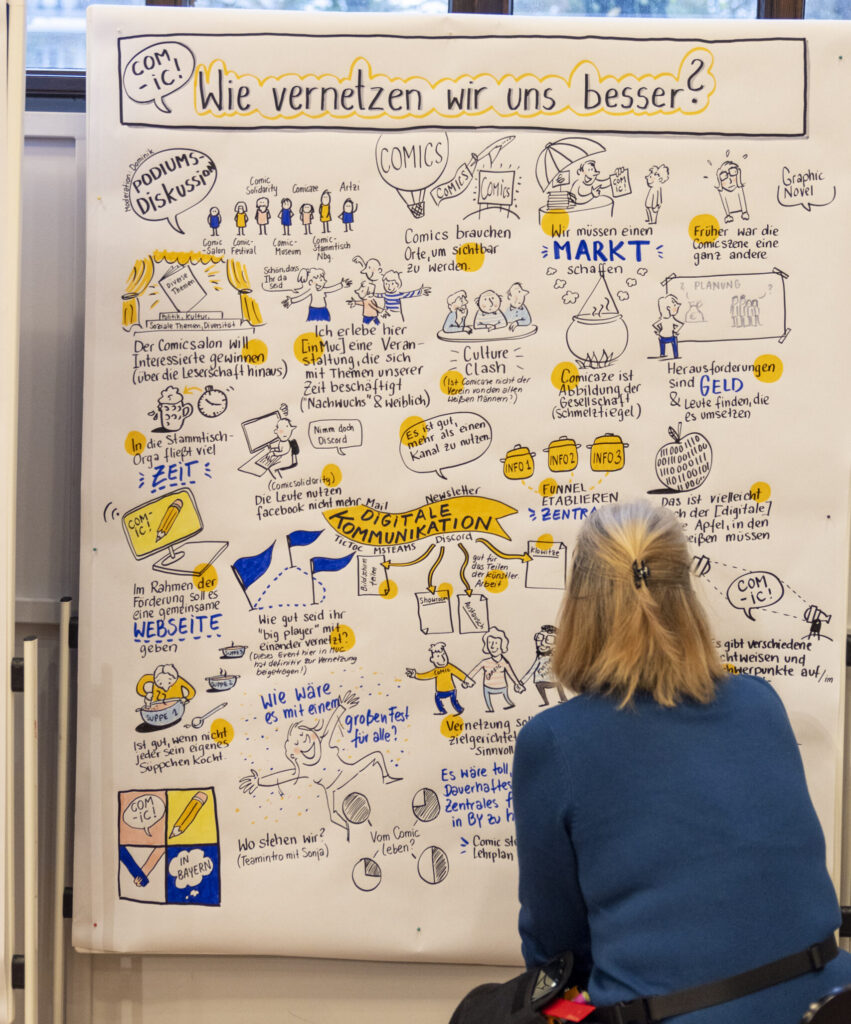 COM
-iC!
Wie vernetzen wir uns besser?
Moderation Dominik
PODIUMS-
Diskussion
Comic
Solidarity
Comicaze
Artzi
Comic
-Salon
Comic-
Festival
Comic-
Museum
Comic-
Stammtisch
Nbg.
COMICS
COMICS
COMICS
Comics brauchen
Orte, um sichtbar
zu werden.
COM
iC!
Wir müssen einen
MARKT
schaffen
Früher war die
Comicszene eine
ganz andere
Graphic
Novel
Diverse
Themen
Politik, Kultur,
Soziale Themen, Diversität
Der Comicsalon will
Interessierte gewinnen
(über die Leserschaft hinaus)
Schön, dass
Ihr da
seid
Ich erlebe hier
[in Muc] eine Veran-
staltung, die sich
mit Themen unserer
Zeit beschäftigt
("Nachwuchs" & weiblich)
Culture
Clash
(Ist Comicaze nicht der
Verein von den alten
Weißen Männern?)
Comicaze ist
Abbildung der
Gesellschaft
(schmelztiegel)
? PLANUNG
?
Herausforderungen
sind GELD
& Leute finden, die
es umsetzen
In die Stammtisch-
Orga fließt viel
ZEIT
Nimm doch
Discord
(Comicsolidarity)
Die Leute nutzen
facebook nicht mehr
Es ist gut,
mehr als einen
Kanal zu nutzen.
INFO 1
INFO 2
INFO 3
FUNNEL
ETABLIEREN
Das ist vielleicht
COM-
-iC!
Im Rahmen der
Förderung soll es
eine gemeinsame
WEBSEITE
geben
Mail
Newsletter
DIGITALE
KOMMUNIKATION
TicToc
MSTEAMS
Discord
Bildschirm
teilen
Showroom
Austausch
gut für
das Teilen
der Künstler.
Arbeit
Klowitze
Wie gut seid ihr
"big player" mit
einander vernetzt?
(Dieses Event hier in Muc
hat definitiv zur Vernetzung
beigetragen!)
COM
-iC!
SUPPE 3
SUPPE 2
SUPPE 1
Ist gut, wenn nicht
jeder sein eigenes
Süppchen kocht.
Wie wäre
es mit einem
großen Fest
für alle?
COMIC
Vernetzung
Es wäre toll,
in BY zu
Comic
Lehrplan
COM
-iC!
IN
BAYERN
Wo stehen wir?
(Teamintro mit Sonja)
Vom Comic
leben?